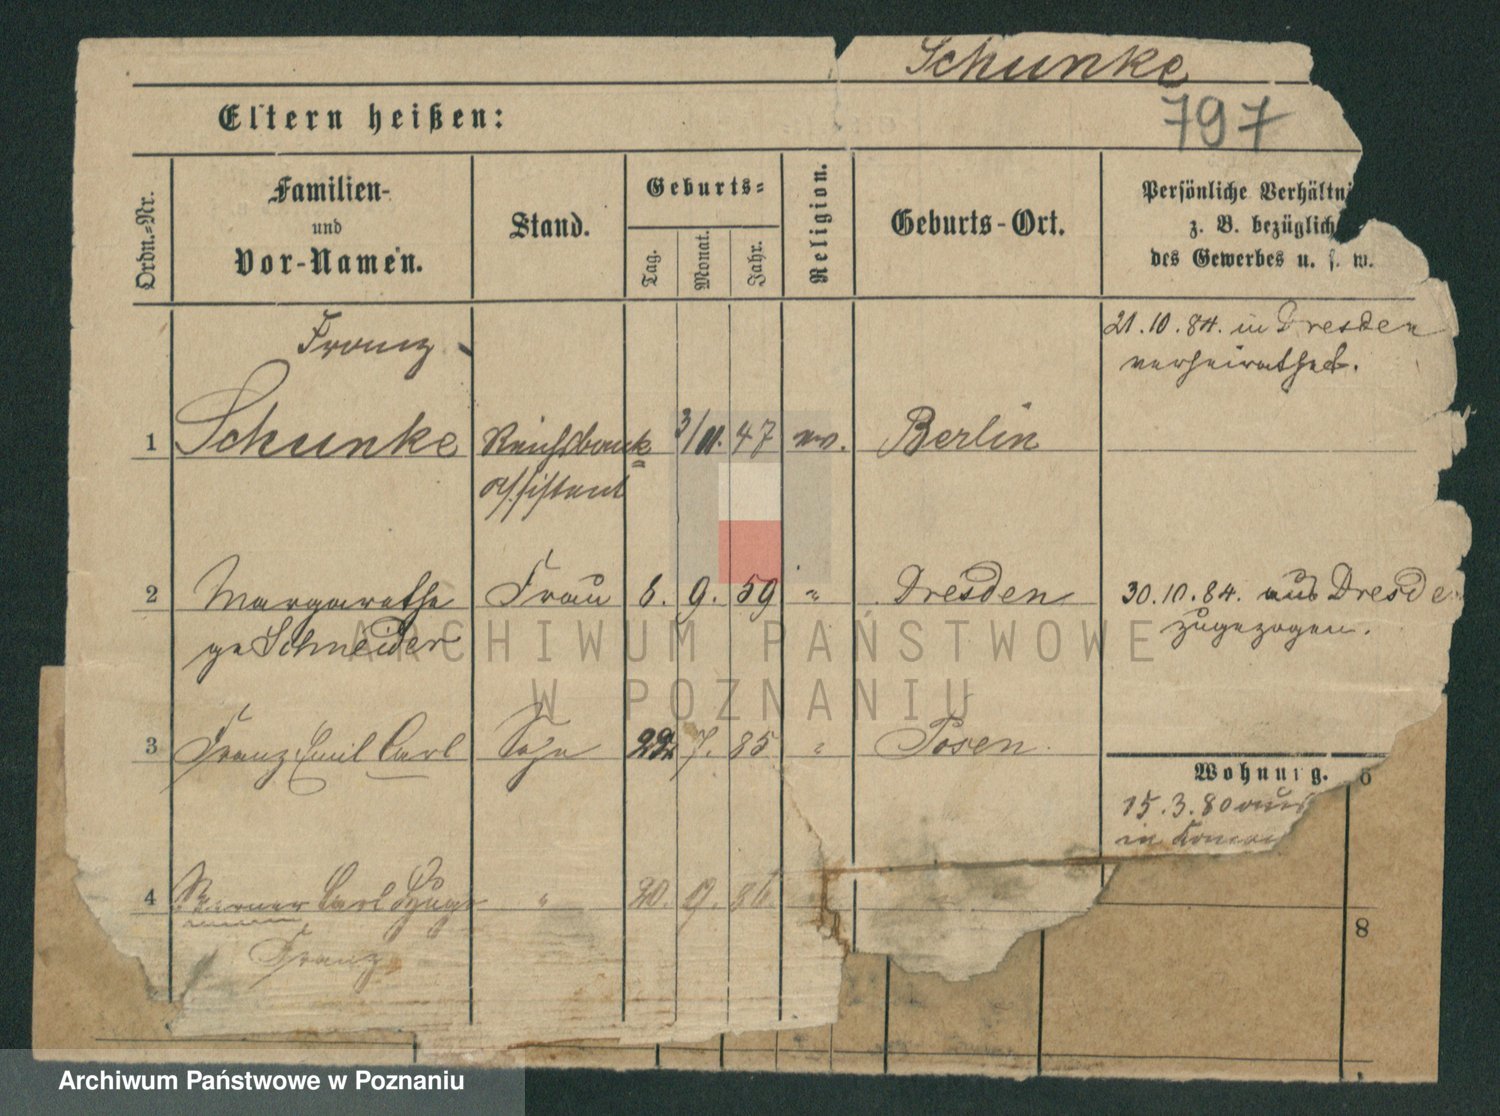 Schunke
797
Eltern heißen:
Ordn.-Nr.
Familien-
und
Vor-Namen.
Stand.
Geburts-
Tag.
Monat.
Jahr.
Religion.
Geburts-Ort.
Persönliche Verhältni
z. B. bezüglich
des Gewerbes u. s. w.
Franz
21.10.84. in Dresden
verheirathet.
1 Schunke Reichsbank 3/11. 47 ev. Berlin
Assistent
2 Margarethe Frau 6. 9. 59 " Dresden 30.10.84. aus Dresde
ge Schneider zugezogen.
3 Franz Emil Carl Sohn 7. 85 " Posen
Wohnung. 6
15.3.80 aus
in
4 Werner Carl Hugo " 20. 9. 86
Franz
8
ARCHIWUM PAŃSTWOWE
W POZNANIU
Archiwum Państwowe w Poznaniu